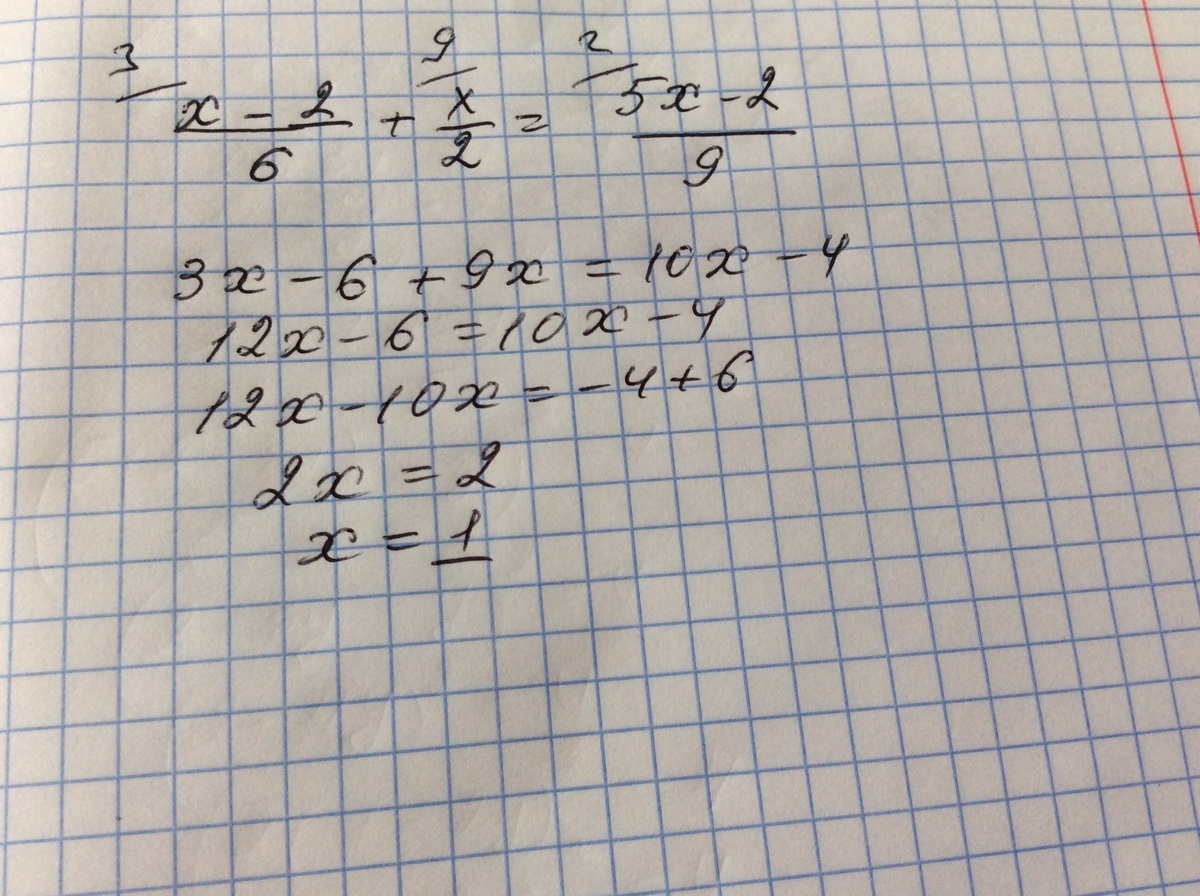 3/ 9/ 2/
x - 2 / 6 + x / 2 = 5x - 2 / 9
3x - 6 + 9x = 10x - 4
12x - 6 = 10x - 4
12x - 10x = -4 + 6
2x = 2
x = 1